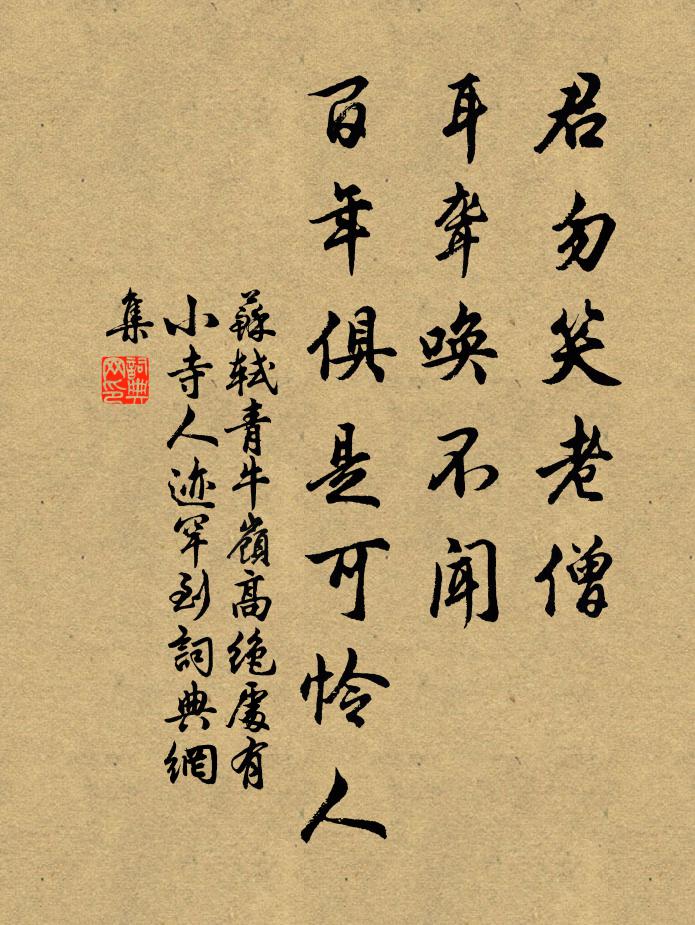 君勿笑老僧
耳聋唤不闻
百年俱是可怜人
蘇軾青牛嶺高絶處有
小寺人迹罕到詞典網
集
詞典
网印